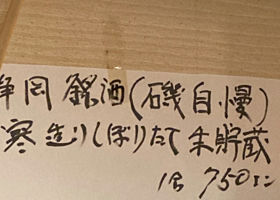 静岡 銘酒(磯自慢)
寒造りしぼりたて 未貯蔵
1合 750エン